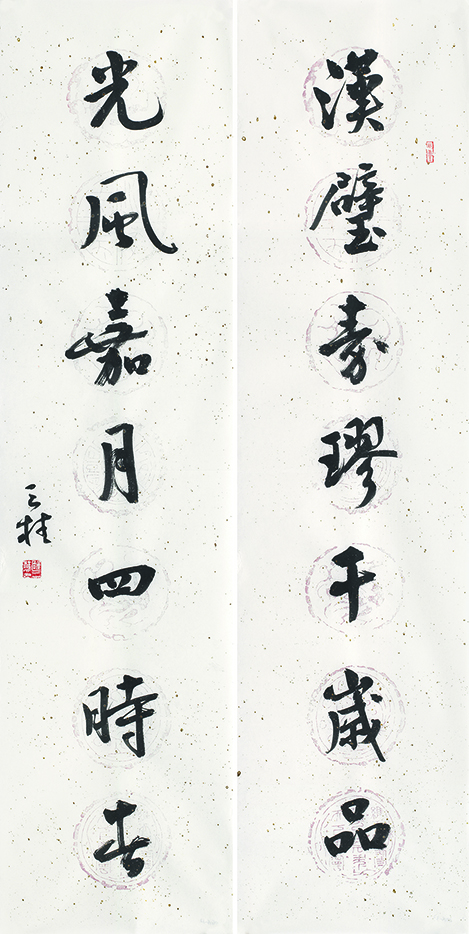 漢璧秦璆千歲品
光風嘉月四時春